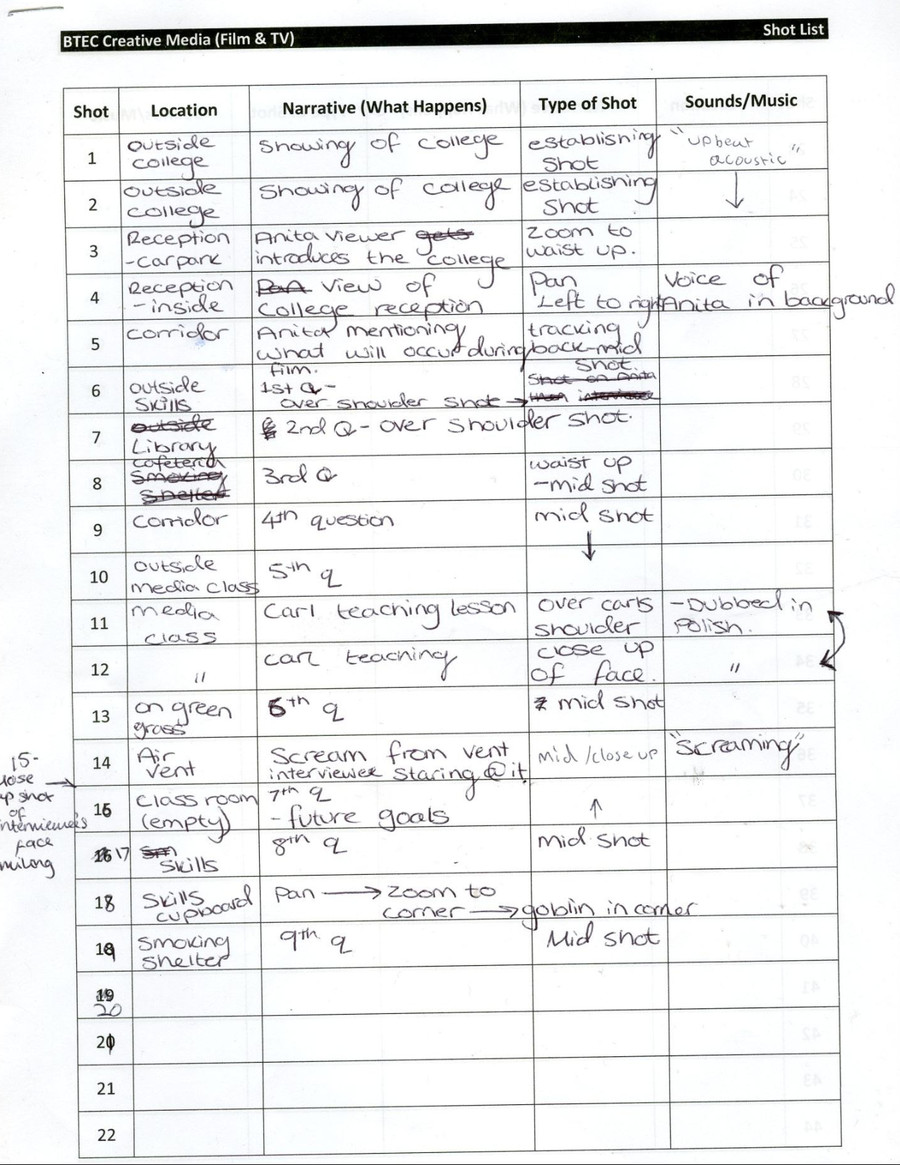 BTEC Creative Media (Film & TV) Shot List
Shot Location Narrative (What Happens) Type of Shot Sounds/Music
1 outside college Showing of college establishing Shot "upbeat acoustic"
2 outside college Showing of college establishing Shot ↓
3 Reception -carpark Anita viewer gets introduces the college zoom to waist up.
4 Reception -inside Pan view of College reception Pan Left to right Voice of Anita in background
5 corridor Anita mentioning what will occur during film. tracking back-mid Shot.
6 outside Skills 1st Q - over shoulder shot → Shot on Anita
7 outside Library 2nd Q - over shoulder shot.
8 cafeteria Smoking Shelter 3rd Q waist up -mid shot
9 corridor 4th question mid shot
10 outside media class 5th q ↓
11 media class Carl teaching lesson over carls shoulder -Dubbed in Polish.
12 " carl teaching close up of face. "
13 on green grass 6th q mid shot
14 Air vent Scream from vent interviewee staring @ it mid/close up "Screaming"
15-
close up shot of interviewees face
16 Class room (empty) 7th q - future goals ↑
17 Skills 8th q mid shot
18 Skills cupboard pan → zoom to corner → goblin in corner
19 smoking shelter 9th q Mid shot
19 20
20
21
22